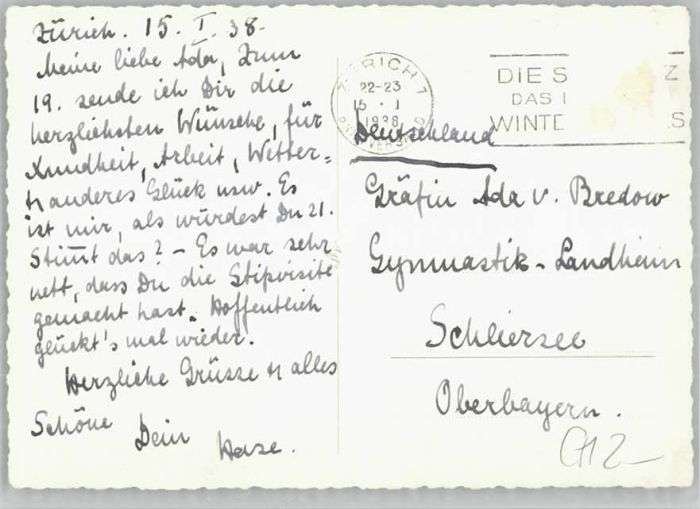 Zürich. 15. I. 38.
Meine liebe Ada, Zum
19. sende ich Dir die
herzlichsten Wünsche, für
Xundheit, Arbeit, Wetter=
u anderes Glück usw. Es
ist mir, als würdest Du 21.
Stimmt das? – Es war sehr
nett, dass Du die Stipvisite
gemacht hast. Hoffentlich
glückt's mal wieder.
Herzliche Grüsse u alles
Schöne Dein
ZÜRICH 7
22-23
15 · I
1938
DIE S Z
DAS I
WINTE S
Deutschland
Gräfin Ada v. Bredow
Gymnastik-Landheim
Schliersee
Oberbayern.